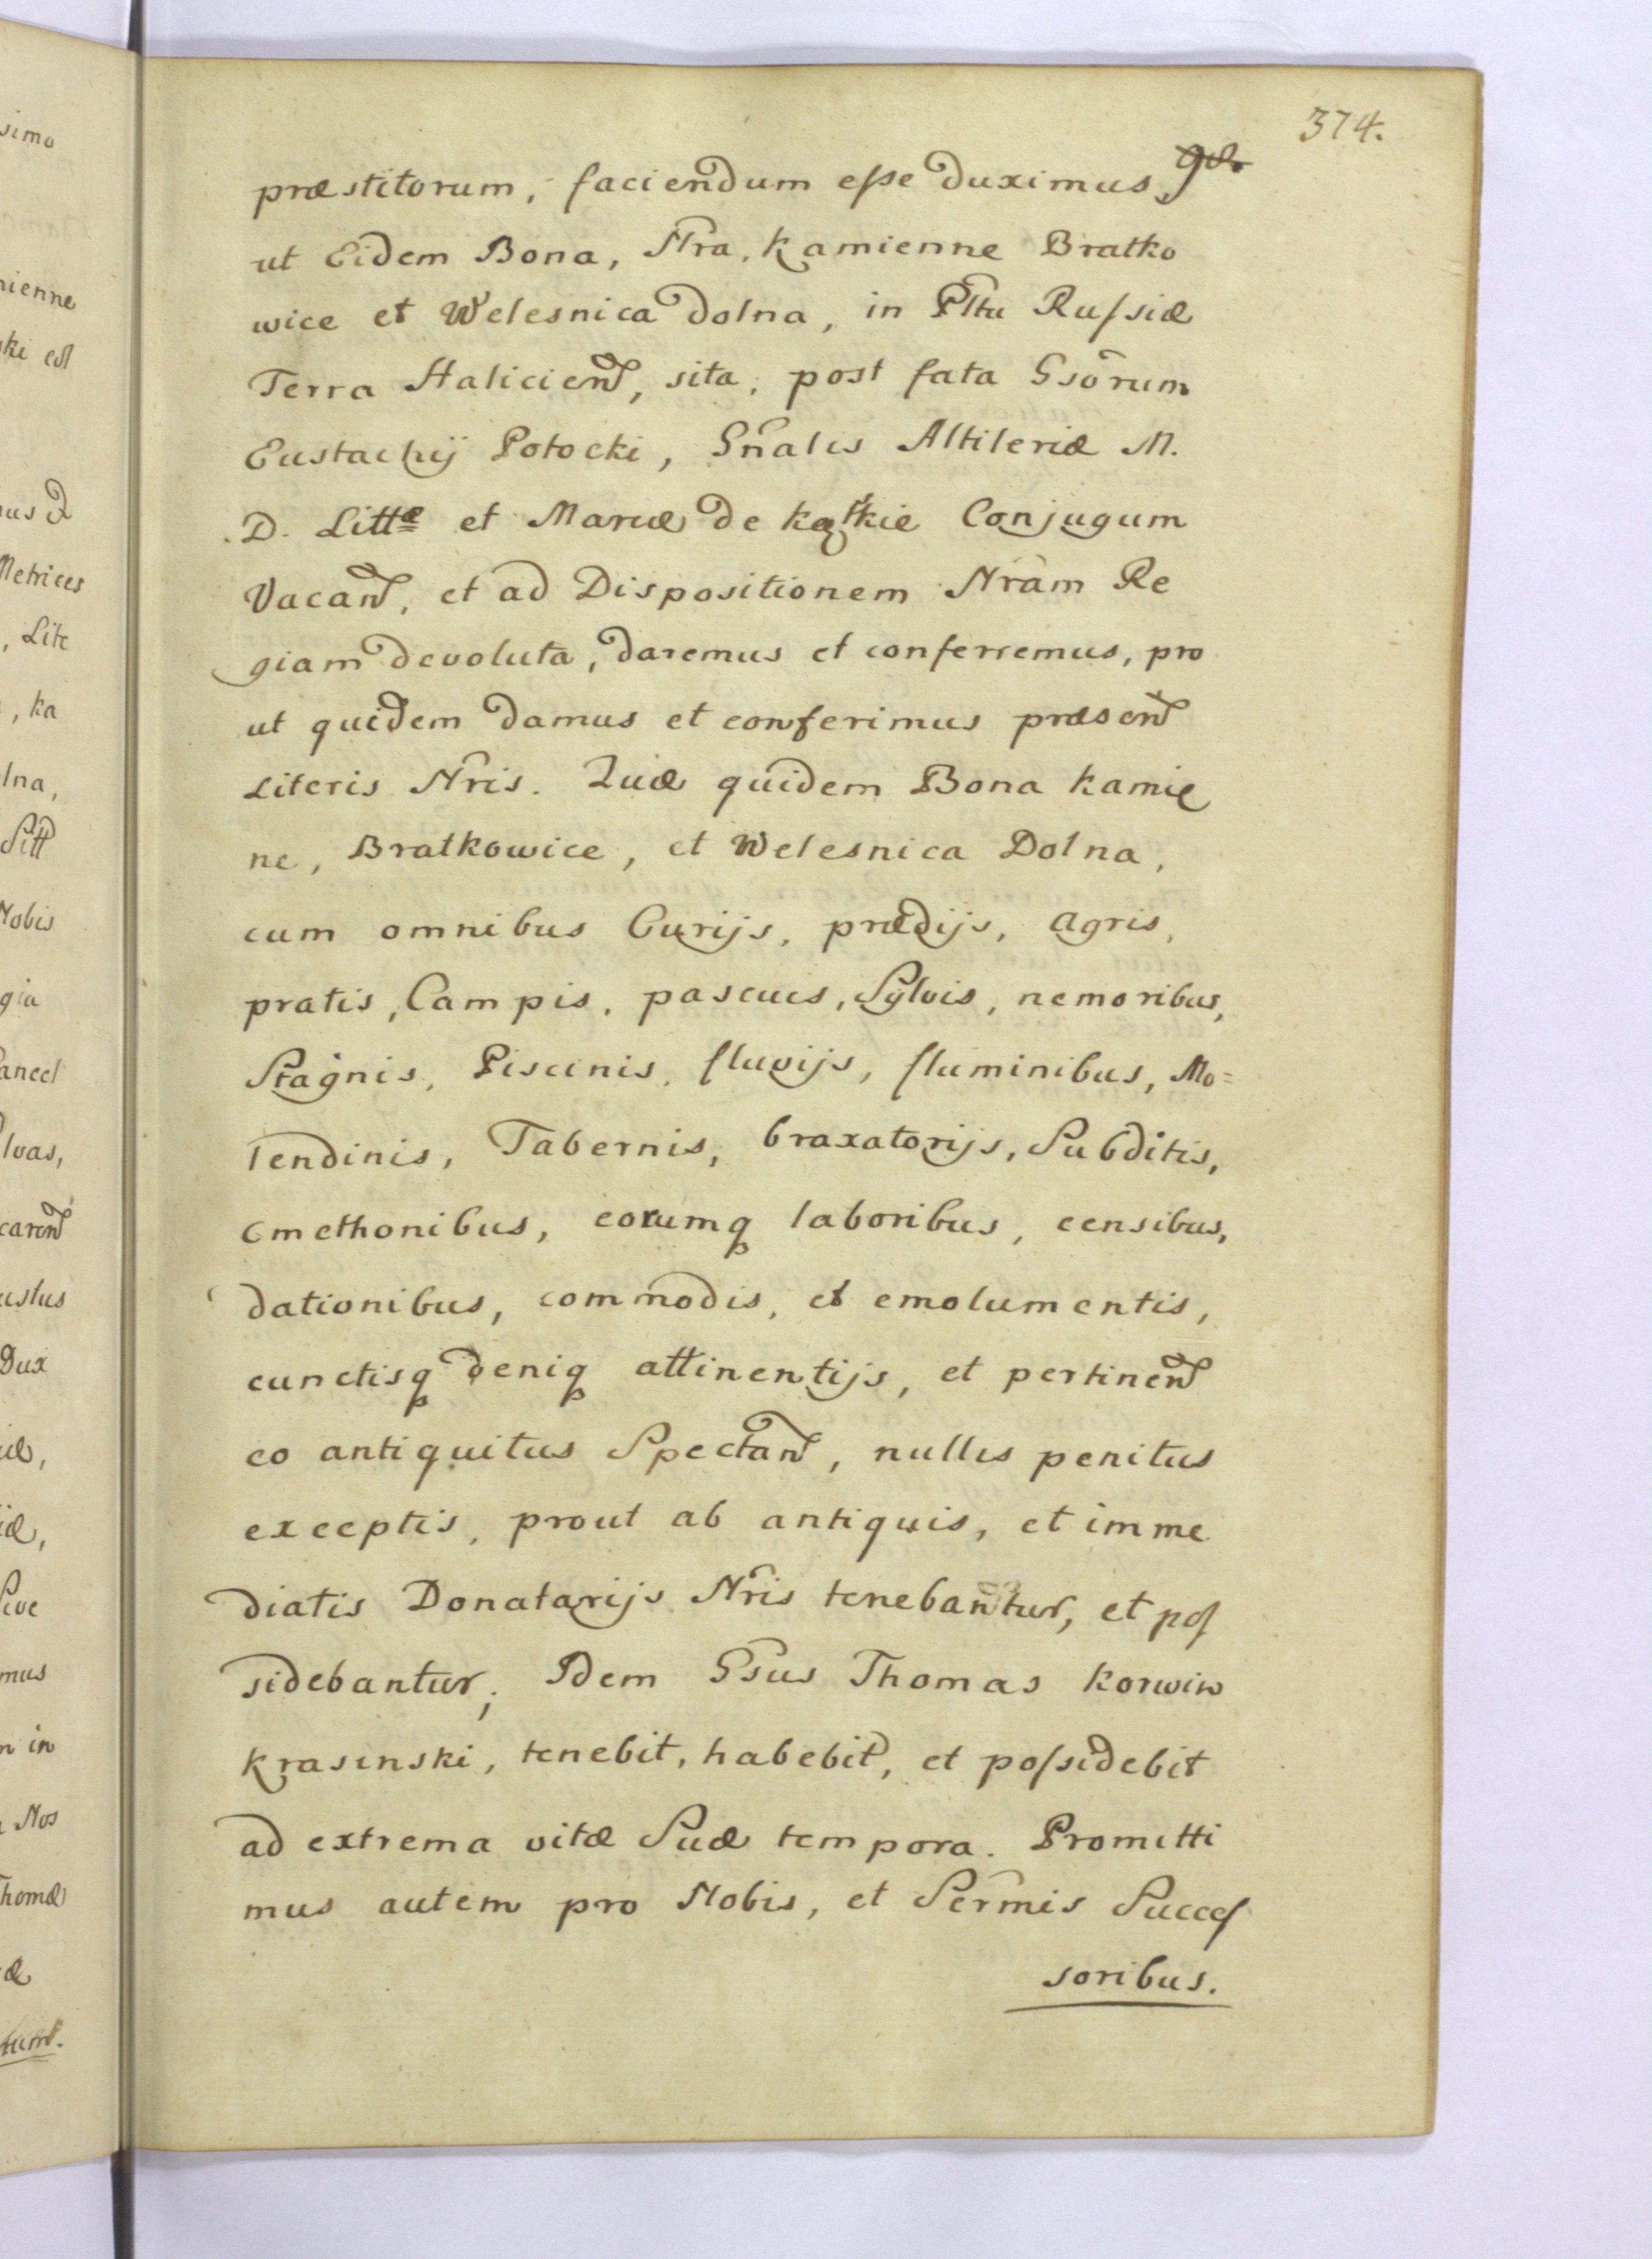 374.
præstitorum, faciendum esse duximus,
ut Eidem Bona, Nra, Kamienne Bratko
wice et Welesnica dolna, in Pltu Russiæ
Terra Halicien, sita, post fata Gsorum
Eustachij Potocki, Gnalis Altileriæ M.
D. Littæ et Mariæ de Kątkie Conjugum
Vacan, et ad Dispositionem Nram Re
giam devoluta, daremus et conferremus, pro
ut quidem damus et conferimus præsen
Literis Nris. Quæ quidem Bona Kamie
ne, Bratkowice, et Welesnica Dolna,
cum omnibus Curijs, prædijs, agris,
pratis, Campis, pascuis, Sylvis, nemoribus,
Stagnis, Piscinis, fluvijs, fluminibus, Mo=
lendinis, Tabernis, braxatorijs, Subditis,
Cmethonibus, eorumq laboribus, censibus,
dationibus, commodis, et emolumentis,
cunctisq deniq attinentijs, et pertinen
eo antiquitus Spectan, nullis penitus
exceptis, prout ab antiquis, et imme
diatis Donatarijs Nris tenebantur, et pos
sidebantur; Idem Gsus Thomas Korwin
Krasinski, tenebit, habebit, et possidebit
ad extrema vitæ Suæ tempora. Promitti
mus autem pro Nobis, et Sermis Succes
soribus.